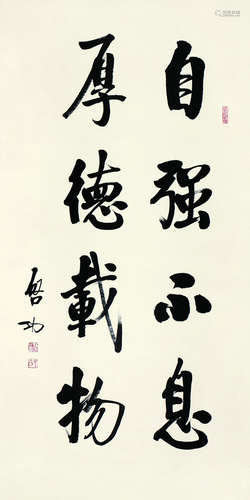 自强不息
厚德載物
启功